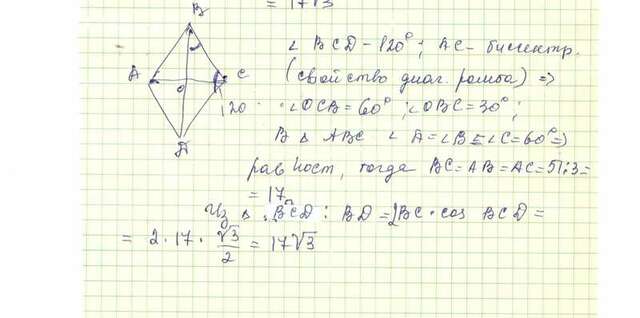 = 17√3
B
A
O
C
120
D
∠ BCD - 120°; AC - биссектр.
(свойство диаг. ромба) =>
∠OCB = 60°; ∠OBC = 30°;
В Δ ABC ∠ A = ∠B = ∠C = 60° =>
равност, тогда BC = AB = AC = 51:3 =
= 17
Из Δ BCD: BD = 2BC · cos BCD =
= 2 · 17 · √3/2 = 17√3